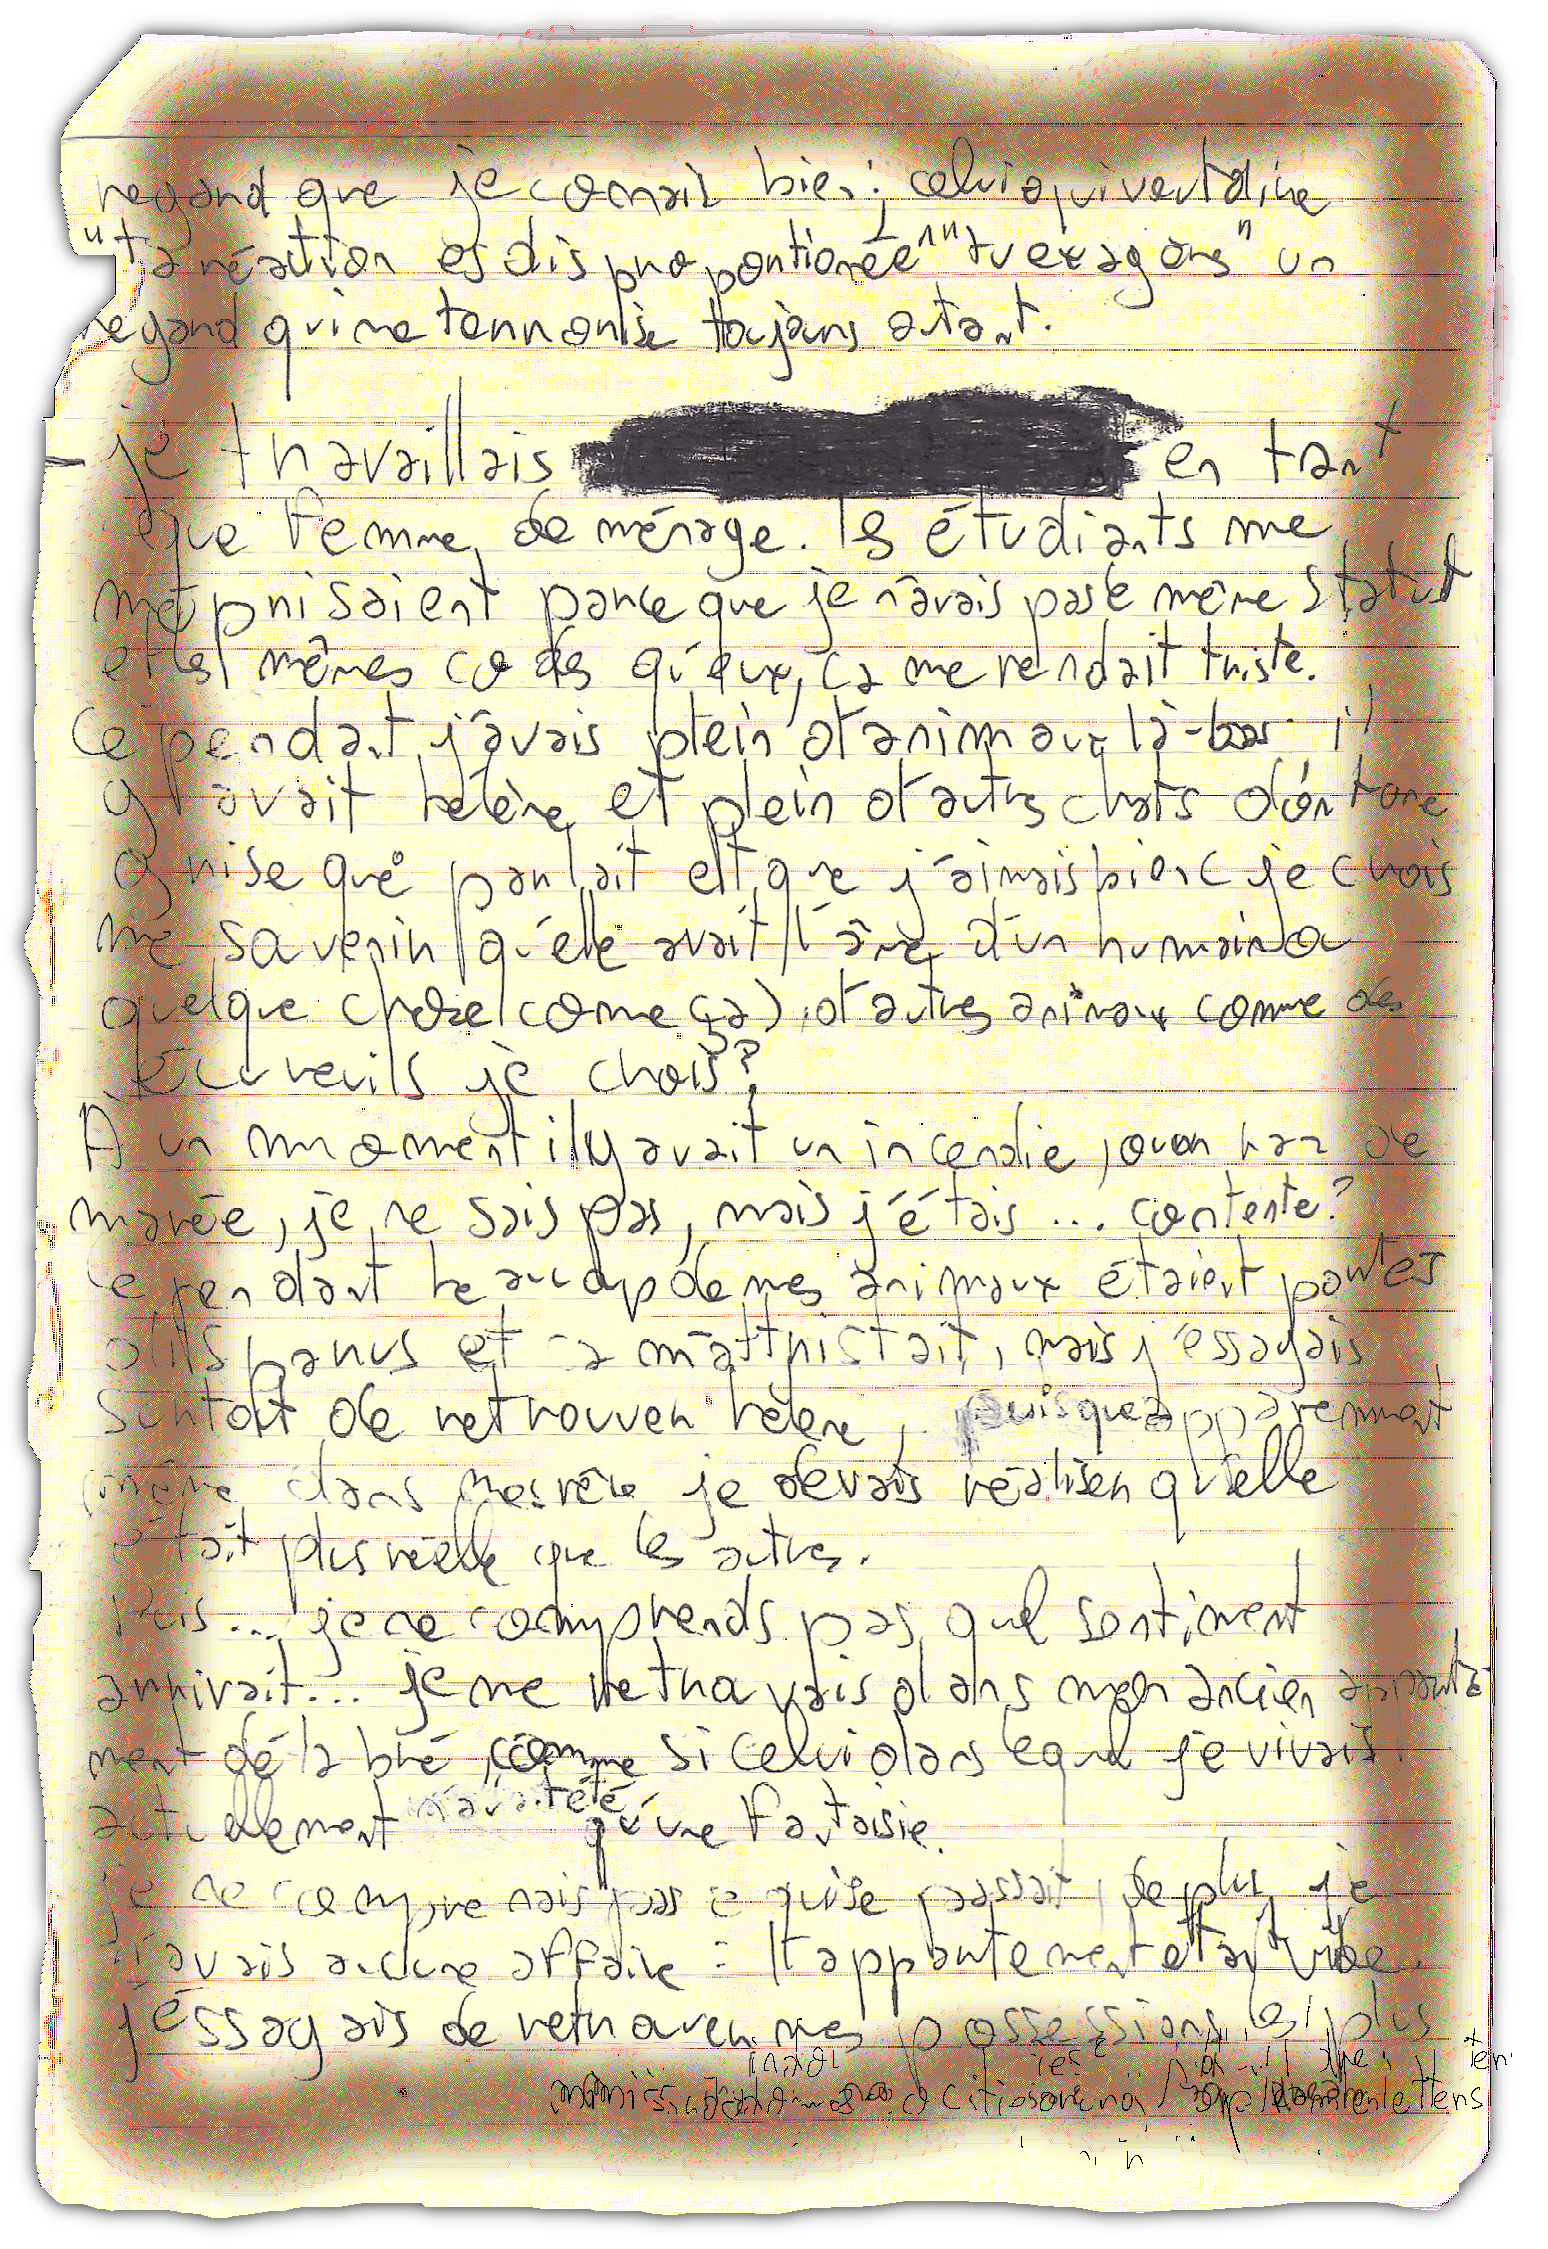 regard que je connait bien; celui qui veut dire
"ta réaction es disproportionée" "tu exagères" un
regard qui me terrorise toujours autant.
- je travaillais en tant
que femme de ménage. les étudiants me
méprisaient parce que je n'avais pas le même statut
et les mêmes codes qu'eux, ça me rendait triste.
Cependant j'avais plein d'animaux là-bas il
y avait hélène et plein d'autres chats dont une
grise que parlait et que j'aimais bien (je crois
me souvenir qu'elle avait l'âme d'un humain ou
quelque chose comme ça), d'autres animaux comme des
écureuils je crois?
A un moment il y avait un incendie, ou un raz de
marée, je ne sais pas, mais j'étais ... contente?
Cependant beaucoup de mes animaux étaient portés
disparus et ça m'attristait, mais j'essayais
surtout de retrouver hélène, puisque apparemment
même dans mes rêve je devais réaliser qu'elle
était plus réelle que les autres.
Puis ... je ne comprends pas quel sentiment
arrivait... je me retrouvais dans mon ancien apparte-
ment délabré, comme si celui dans lequel je vivais
actuellement n'avait été qu'une fantaisie.
je ne comprenais pas ce qui se passait, de plus je
n'avais aucune affaire : l'appartement était vide.
j'éssayais de retrouver mes possessions les plus